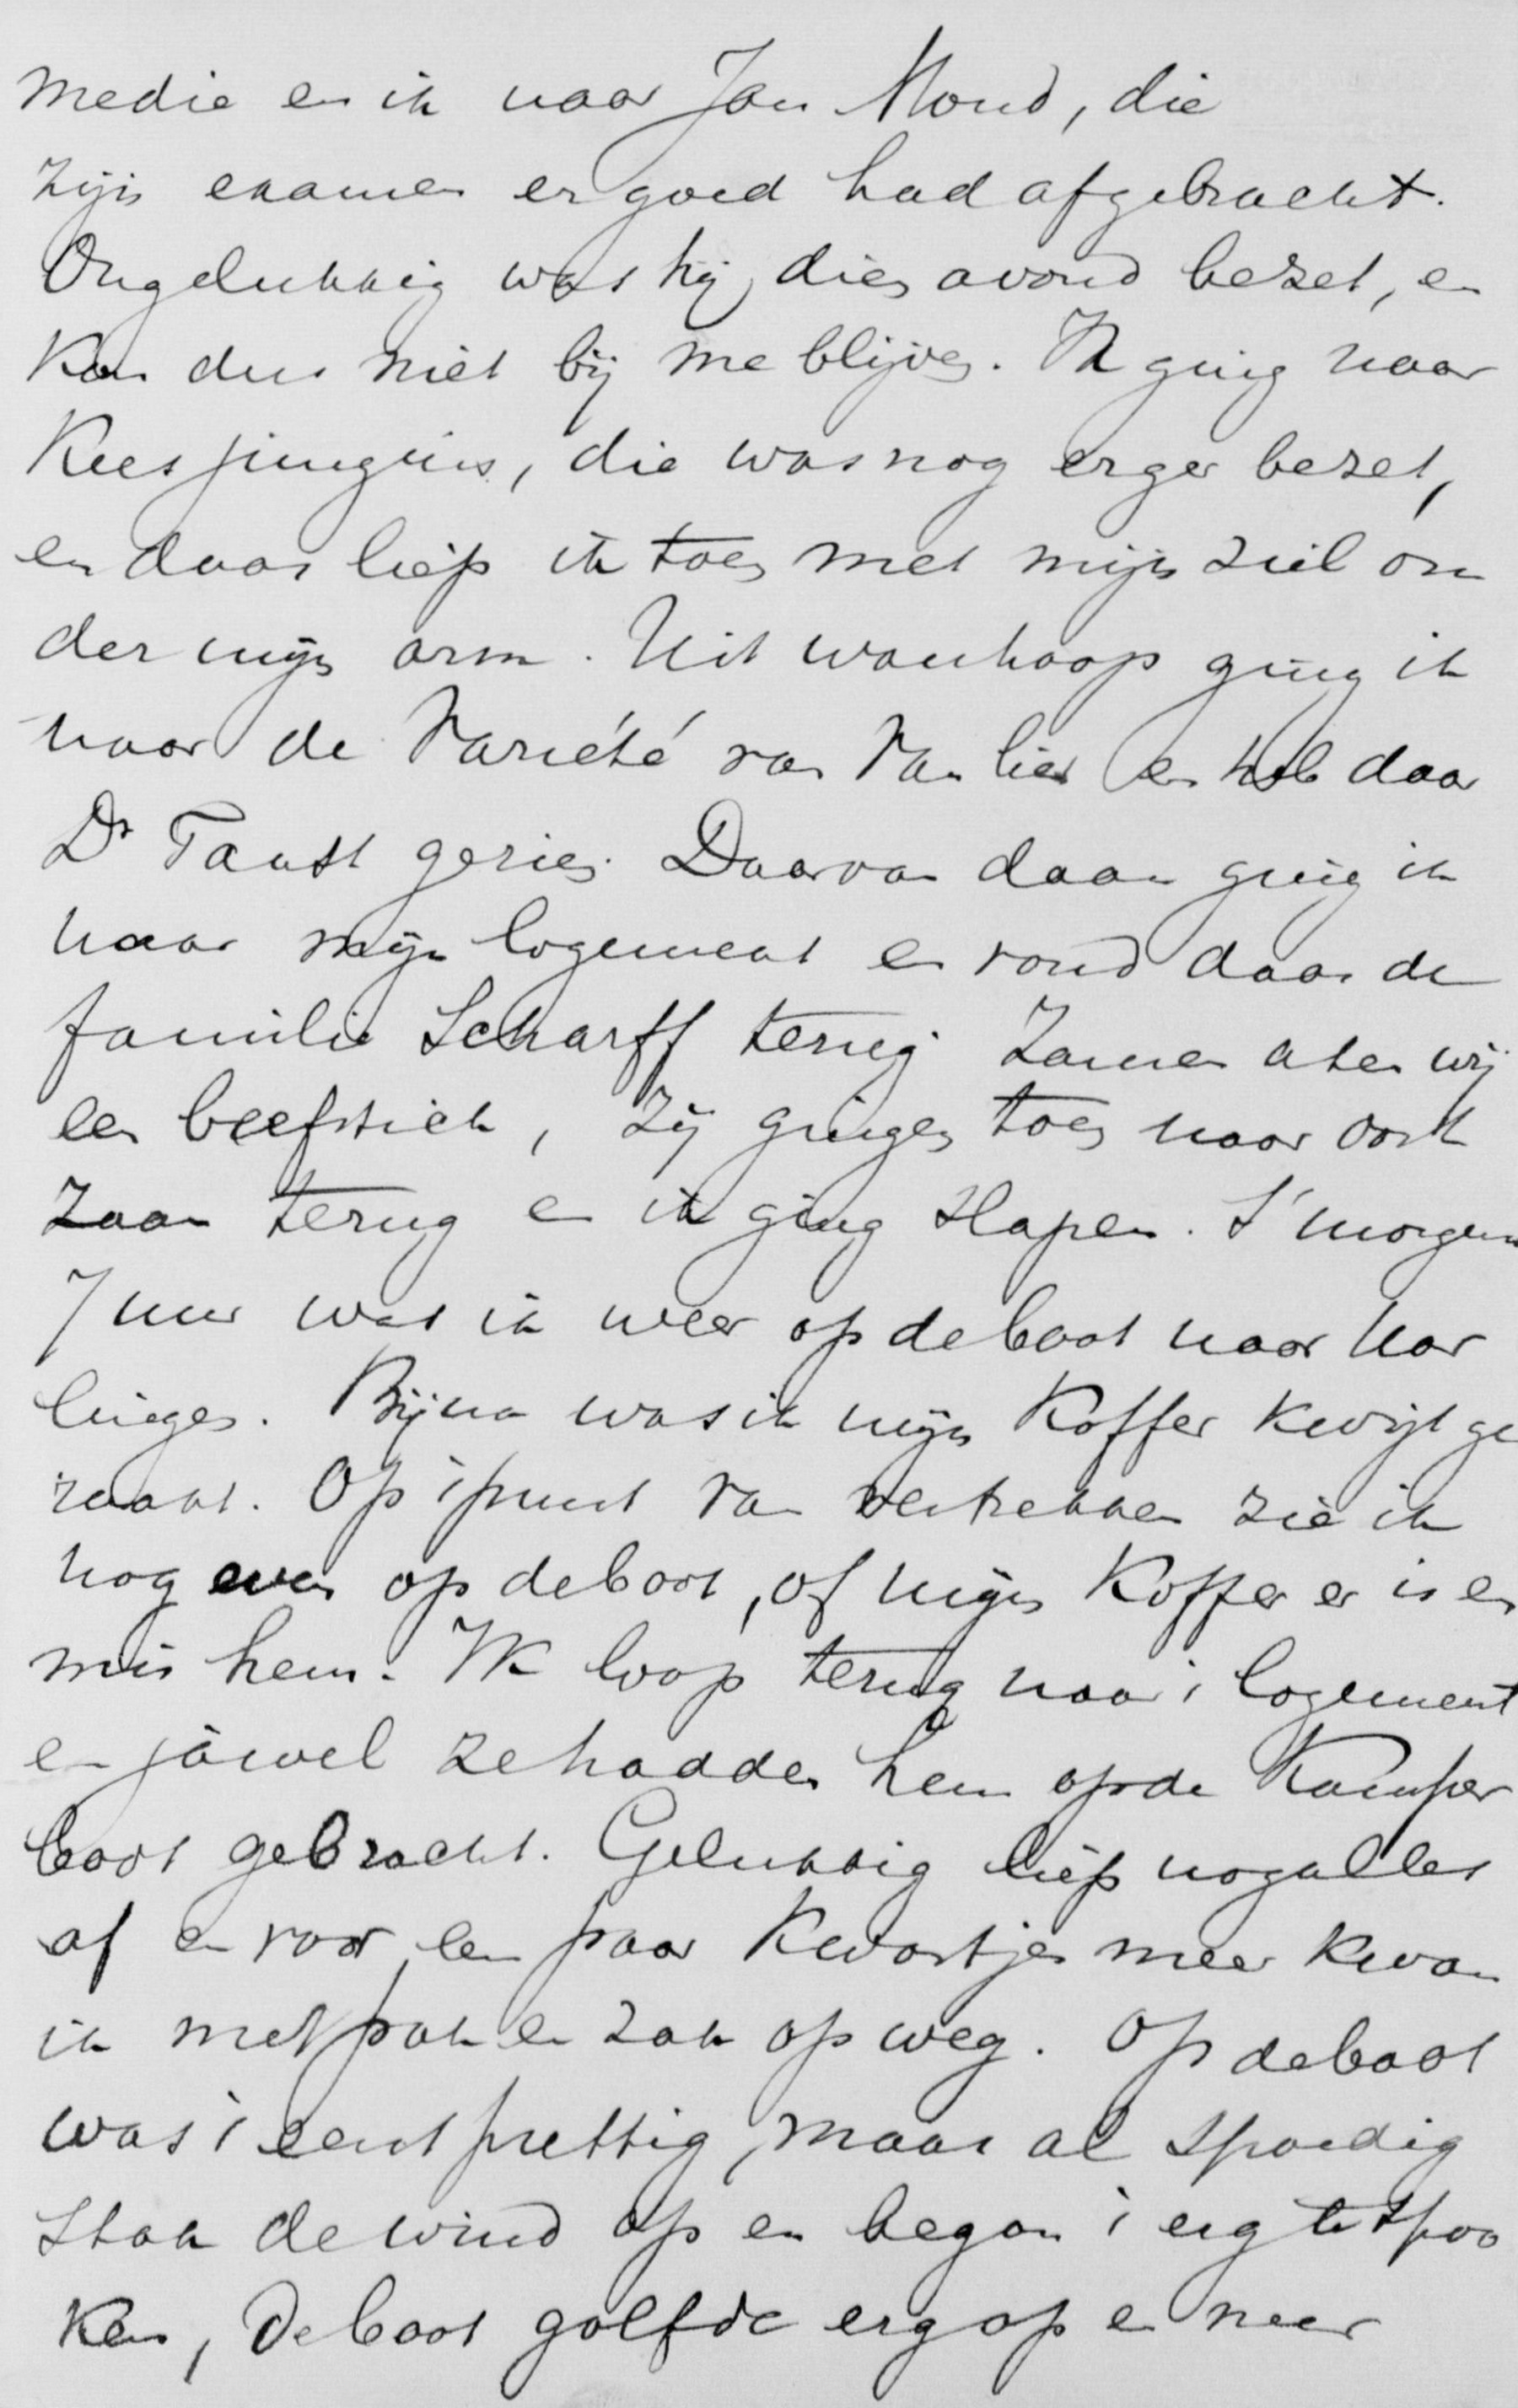 medie en ik naar Jan Mond, die
zijn examen er goed had afgebracht.
Ongelukkig was hij dien avond bezet, en
kon dus niet bij me blijven. Ik ging naar
Kees jungius, die was nog erger bezet,
en daar liep ik toen met mijn ziel on
der mijn arm. Uit wanhoop ging ik
naar de Variété van Van lier en heb daar
Dr Faust gezien. Daarvan daan ging ik
naar mijn logement en vond daar de
familie Scharff terug. Zamen aten wij
een beefstick, zij gingen toen naar oost
zaan terug en ik ging slapen. S'morgens
7 uur was ik weer op de boot naar Har
lingen. Bijna was ik mijn koffer kwijt ge
raakt. Op 't punt van vertrekken zie ik
nog even op de boot, of mijn koffer er is en
mis hem. Ik loop terug naar 't logement
en jawel ze hadden hem op de Kamper
boot gebracht. Gelukkig liep nog alles
af en voor een paar kwartjes meer kwam
ik met pak en zak op weg. Op de boot
was 't eerst prettig, maar al spoedig
stak de wind op en begon 't erg te spoo
ken, De boot golfde erg op en neer